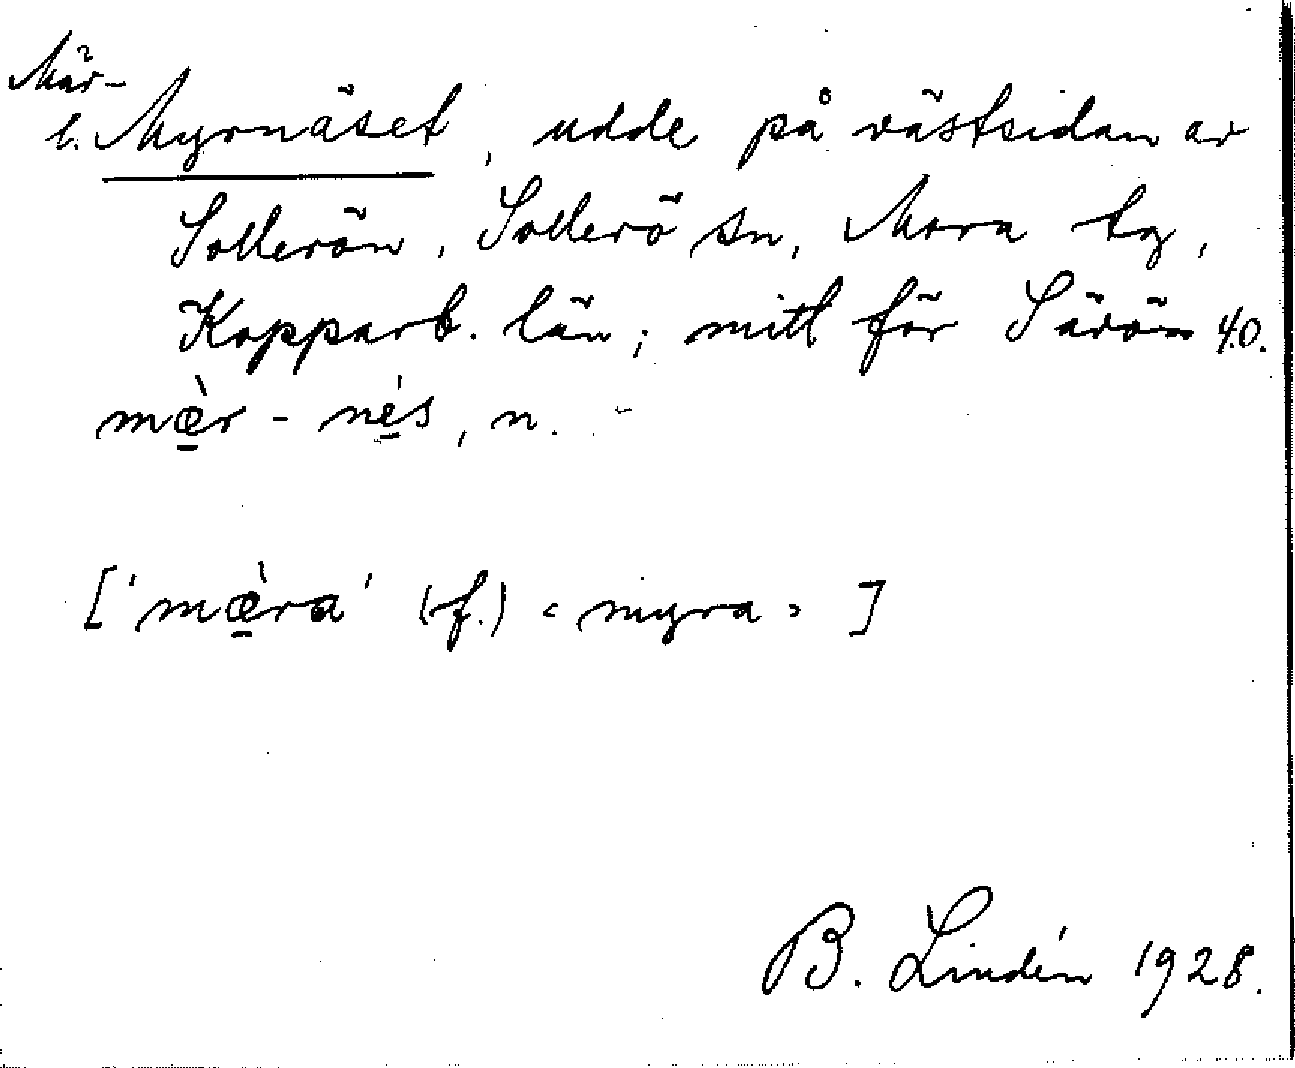 Mär-
l. Myrnäset, udde på västsidan av
Sollerön, Sollerö sn, Mora tg,
Kopparb. län; mitt för Särön 4.0.
mæ̱̀r - né̱s, n.
['mæ̱̀ra' (f.) ‹ myra › ]
B. Lindén 1928.